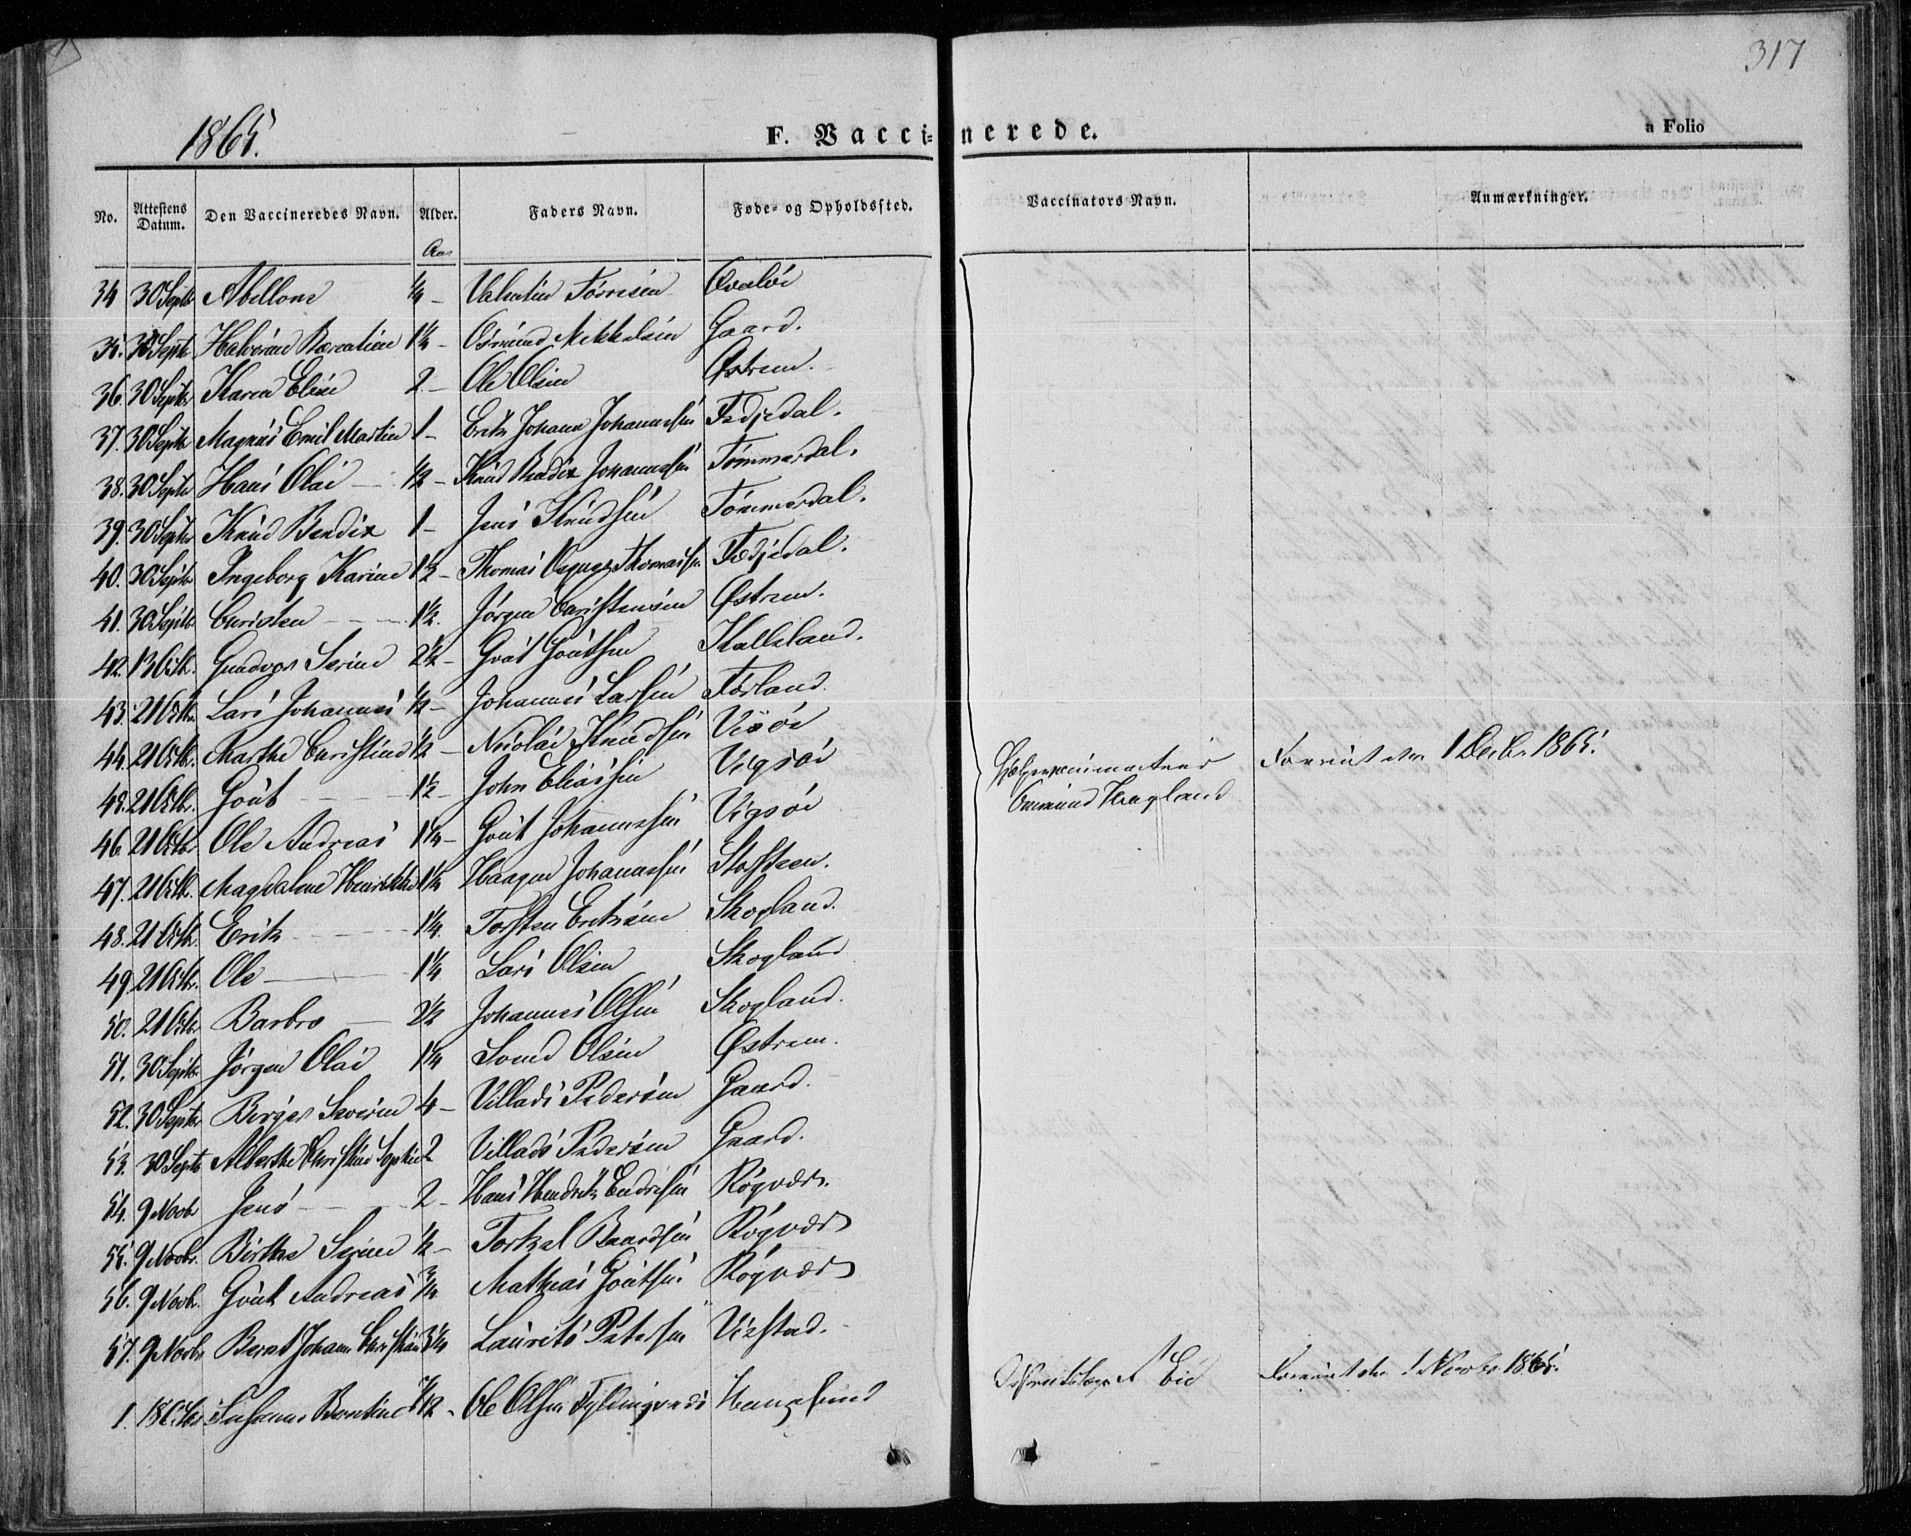 317
1865.
F. Vaccinerede.
a Folio
No. Attestens Datum. Den Vaccineredes Navn. Alder. Faders Navn. Føde- og Opholdssted. Vaccinators Navn. Anmærkninger.
Aar
34 30 Septb Abellone 1/4 - Valentin Tørresen
35. 30 Septb 1 1/4 - Osmund Mikkelsen Gaard.
36. 30 Septb Karen Elise 2 - Ole Olsen Østrem.
37. 30 Septb Magnus Emil Martin 1 - Erik Johann Johannessen Fedjedal.
38. 30 Septb Hans Olai - 1/2 - Knud Bendix Johannessen Tømmerdal.
39. 30 Septb Knud Bendix 1 - Jens Knudsen Tømmerdal.
40. 30 Septb Ingeborg Karine 1 1/2 - Thomas Thomassen Fedjedal.
41. 30 Septb Christen - 1 1/2. Jørgen Christensen Østrem.
42. 13 Octb. Gundvor Serine 2 1/2 - Goût Goûtsen Kalleland.
43. 21 Octb. Lars Johannes 1/2 - Johannes Larsen Førland.
44. 21 Octb. Marthe Christine 1/2 - Nicolai Knudsen
45. 21 Octb. Goût - 1 1/2 - John Eliassen Vigsøe
46. 21 Octb. Ole Andreas 1 1/4 - Goût Johannessen Vigsøe
47. 21 Octb. Magdalene Henrikke 1 1/4 Haagen Johannessen Stolsteen.
48. 21 Octb. Erik - 1 1/4. Torsten Eriksen Skogland.
49. 21 Octb. Ole - 1 1/4 Lars Olsen Skogland
50. 21 Octb Barbro - 2 1/2 Johannes Olsen Skogland.
51. 30 Septb. Jørgen Olai 1 1/4 Svend Olsen Østrem.
52. 30 Septb Severin 4 - Villads Pedersen Gaard.
53. 30 Septb Alberthe Christine Sophie 2 Villads Pedersen Gaard.
54. 9 Novb Jens - 2 - Hans Hendrik Endresen Røgvær.
55. 9 Novbr. Birthe Serine 1/2 - Torkel Baardsen Røgvær
56. 9 Novb. Goût Andreas 3/4 Mathias Goûtsen Røgvær
57. 9 Novbr Bernt Johan Christian 3 1/4 Laurits Petersen Viestad.
Hjelpevaccinateur
Osmund Hagland
1 Decbr 1865.
1. 18 Octbr Susanne Bentine 7/12 - Ole Olsen Haugesund
Eie
1 Novbr 1865.